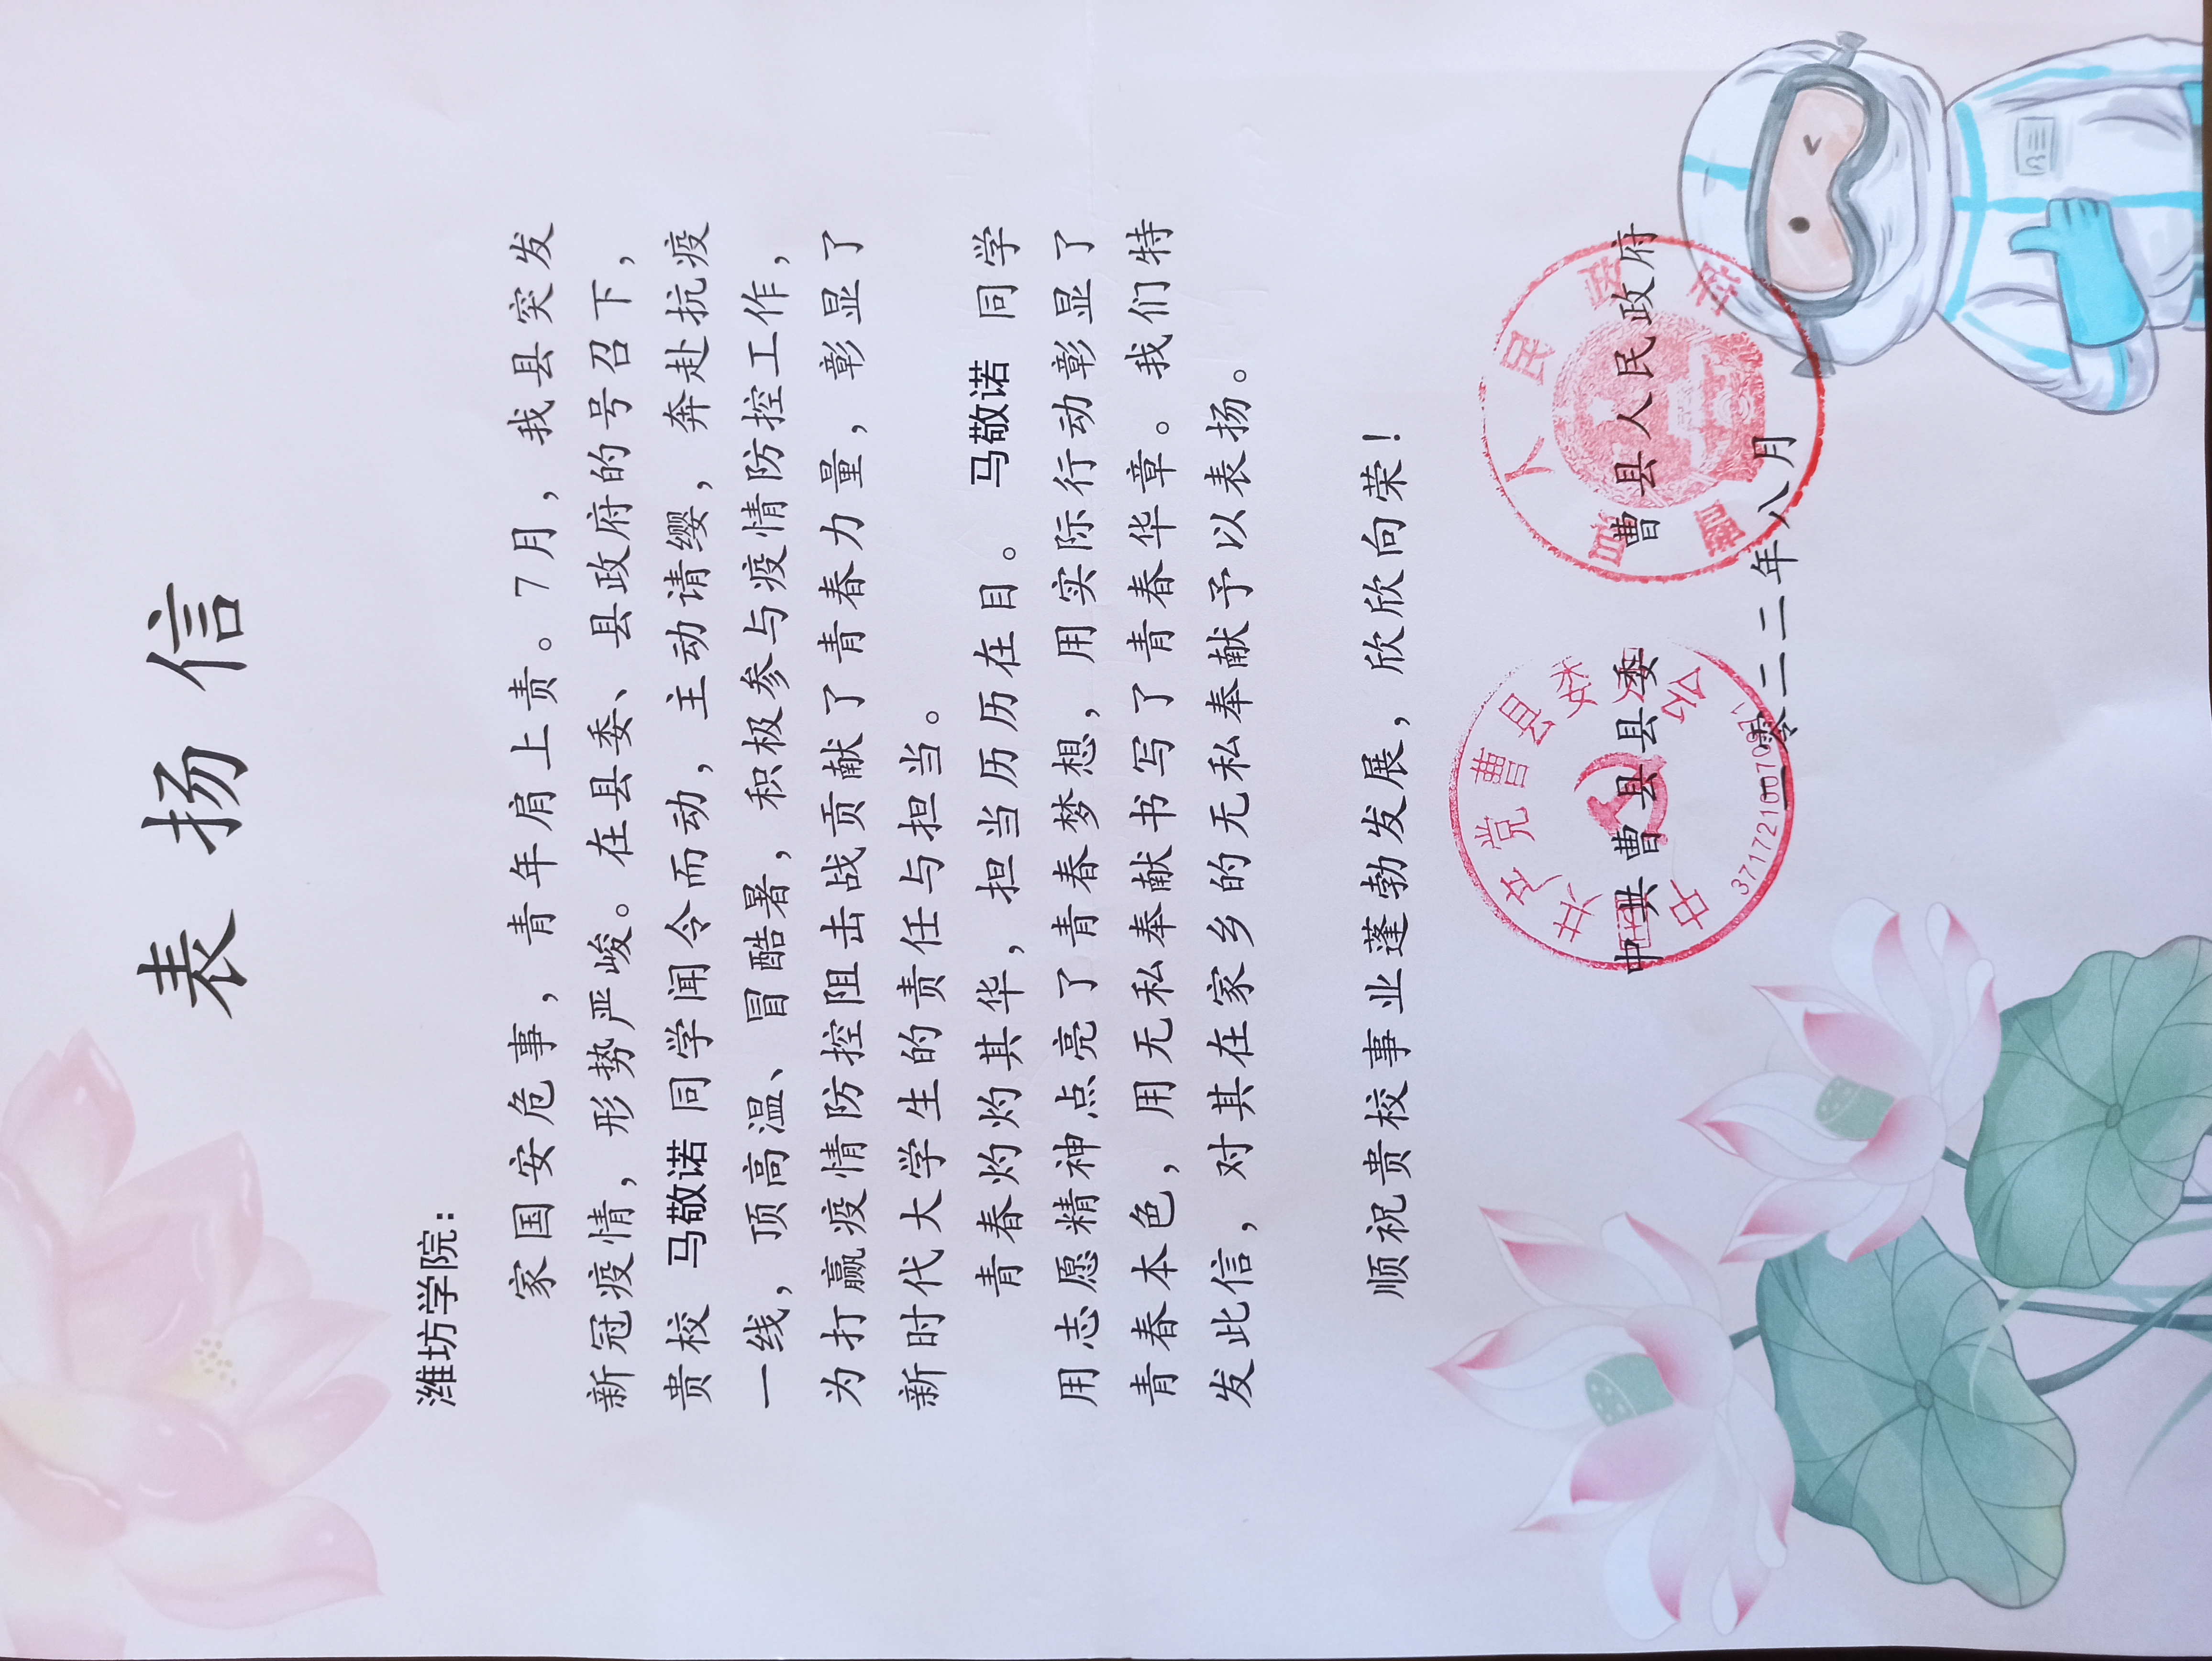 表扬信
潍坊学院：
家国安危事，青年肩上责。7月，我县突发
新冠疫情，形势严峻。在县委、县政府的号召下，
贵校 马敬诺 同学闻令而动，主动请缨，奔赴抗疫
一线，顶高温、冒酷暑，积极参与疫情防控工作，
为打赢疫情防控阻击战贡献了青春力量，彰显了
新时代大学生的责任与担当。
青春灼灼其华，担当历历在目。 马敬诺 同学
用志愿精神点亮了青春梦想，用实际行动彰显了
青春本色，用无私奉献书写了青春华章。我们特
发此信，对其在家乡的无私奉献予以表扬。
顺祝贵校事业蓬勃发展，欣欣向荣！
中共曹县县委 曹县人民政府
二零二二年八月
曹县人民政府